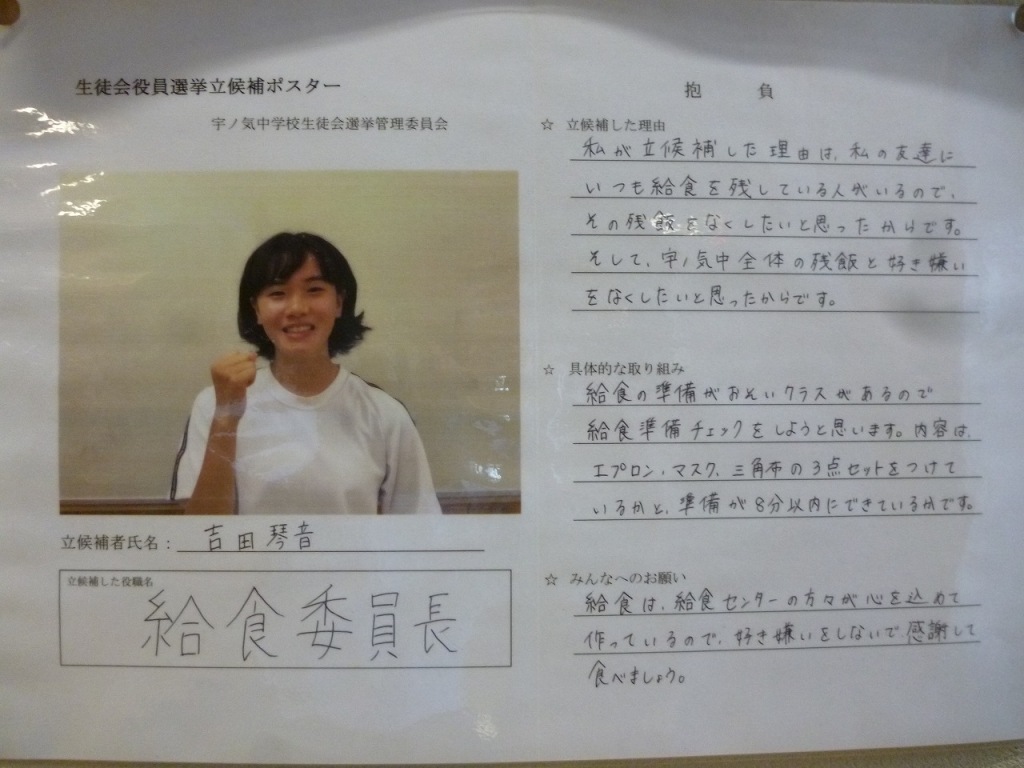 生徒会役員選挙立候補ポスター
宇ノ気中学校生徒会選挙管理委員会
立候補者氏名：吉田琴音
立候補した役職名
給食委員長
抱　負
☆ 立候補した理由
私が立候補した理由は、私の友達に
いつも給食を残している人がいるので、
その残飯をなくしたいと思ったからです。
そして、宇ノ気中全体の残飯と好き嫌い
をなくしたいと思ったからです。
☆ 具体的な取り組み
給食の準備がおそいクラスがあるので
給食準備チェックをしようと思います。内容は、
エプロン、マスク、三角布の3点セットをつけて
いるかと、準備が8分以内にできているかです。
☆ みんなへのお願い
給食は、給食センターの方々が心を込めて
作っているので、好き嫌いをしないで感謝して
食べましょう。